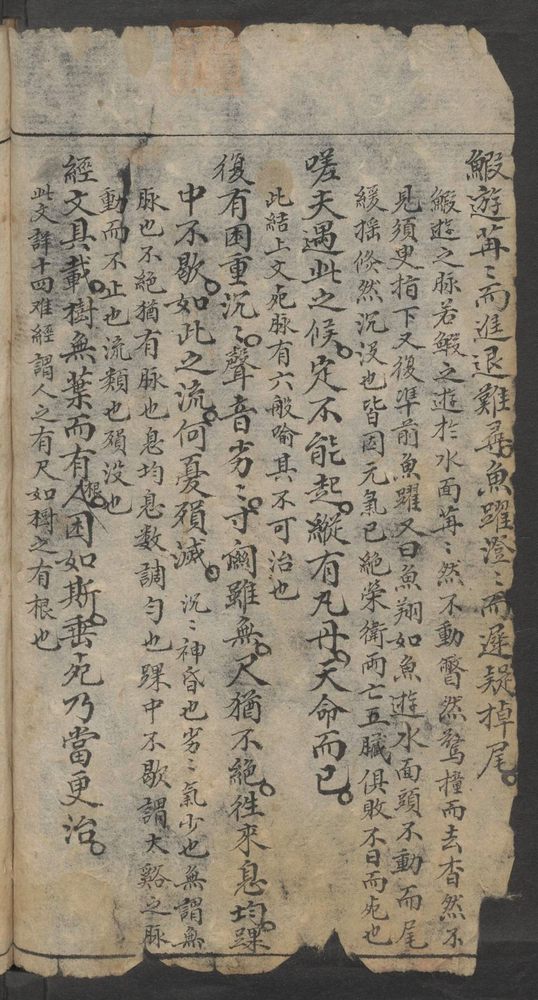 鰕遊苒〻而進退難尋魚躍澄〻而遲疑掉尾
鰕遊之脉若鰕之遊於水面苒〻然不動瞥然驚撞而去杳然不
見須臾指下又復準前魚躍又曰魚翔如魚遊水面頭不動而尾
緩揺倐然沉没也皆因元氣已絶榮衛兩亡五臓俱敗不日而死也
嗟夫遇此之候定不能起縱有凡丹天命而已
此結上文死脉有六般喻其不可治也
復有困重沉〻聲音劣〻寸関雖無尺猶不絶徃來息均踝
中不歇如此之流何憂殞滅 沉〻神昏也劣〻氣少也無謂無
脉也不絶猶有脉也息均息数調匀也踝中不歇謂大谿之脉
動而不止也流類也殞没也
經文具載樹無葉而有根人困如斯垂死乃當更治
此文詳十四难經謂人之有尺如樹之有根也